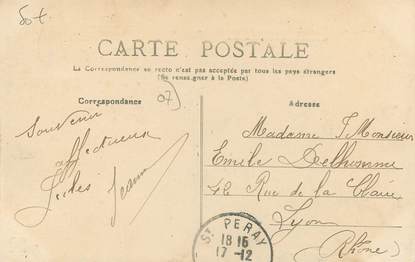 50+
CARTE POSTALE
La Correspondance au recto n'est pas acceptée par tous les pays étrangers
(Se renseigner à la Poste)
Correspondance
07
Souvenir
affectueux
Jules Jeanne
Adresse
Madame & Monsieur
Emile Delhomme
42 Rue de la Claire
Lyon
(Rhône)
ST PERAY
18 15
17-12